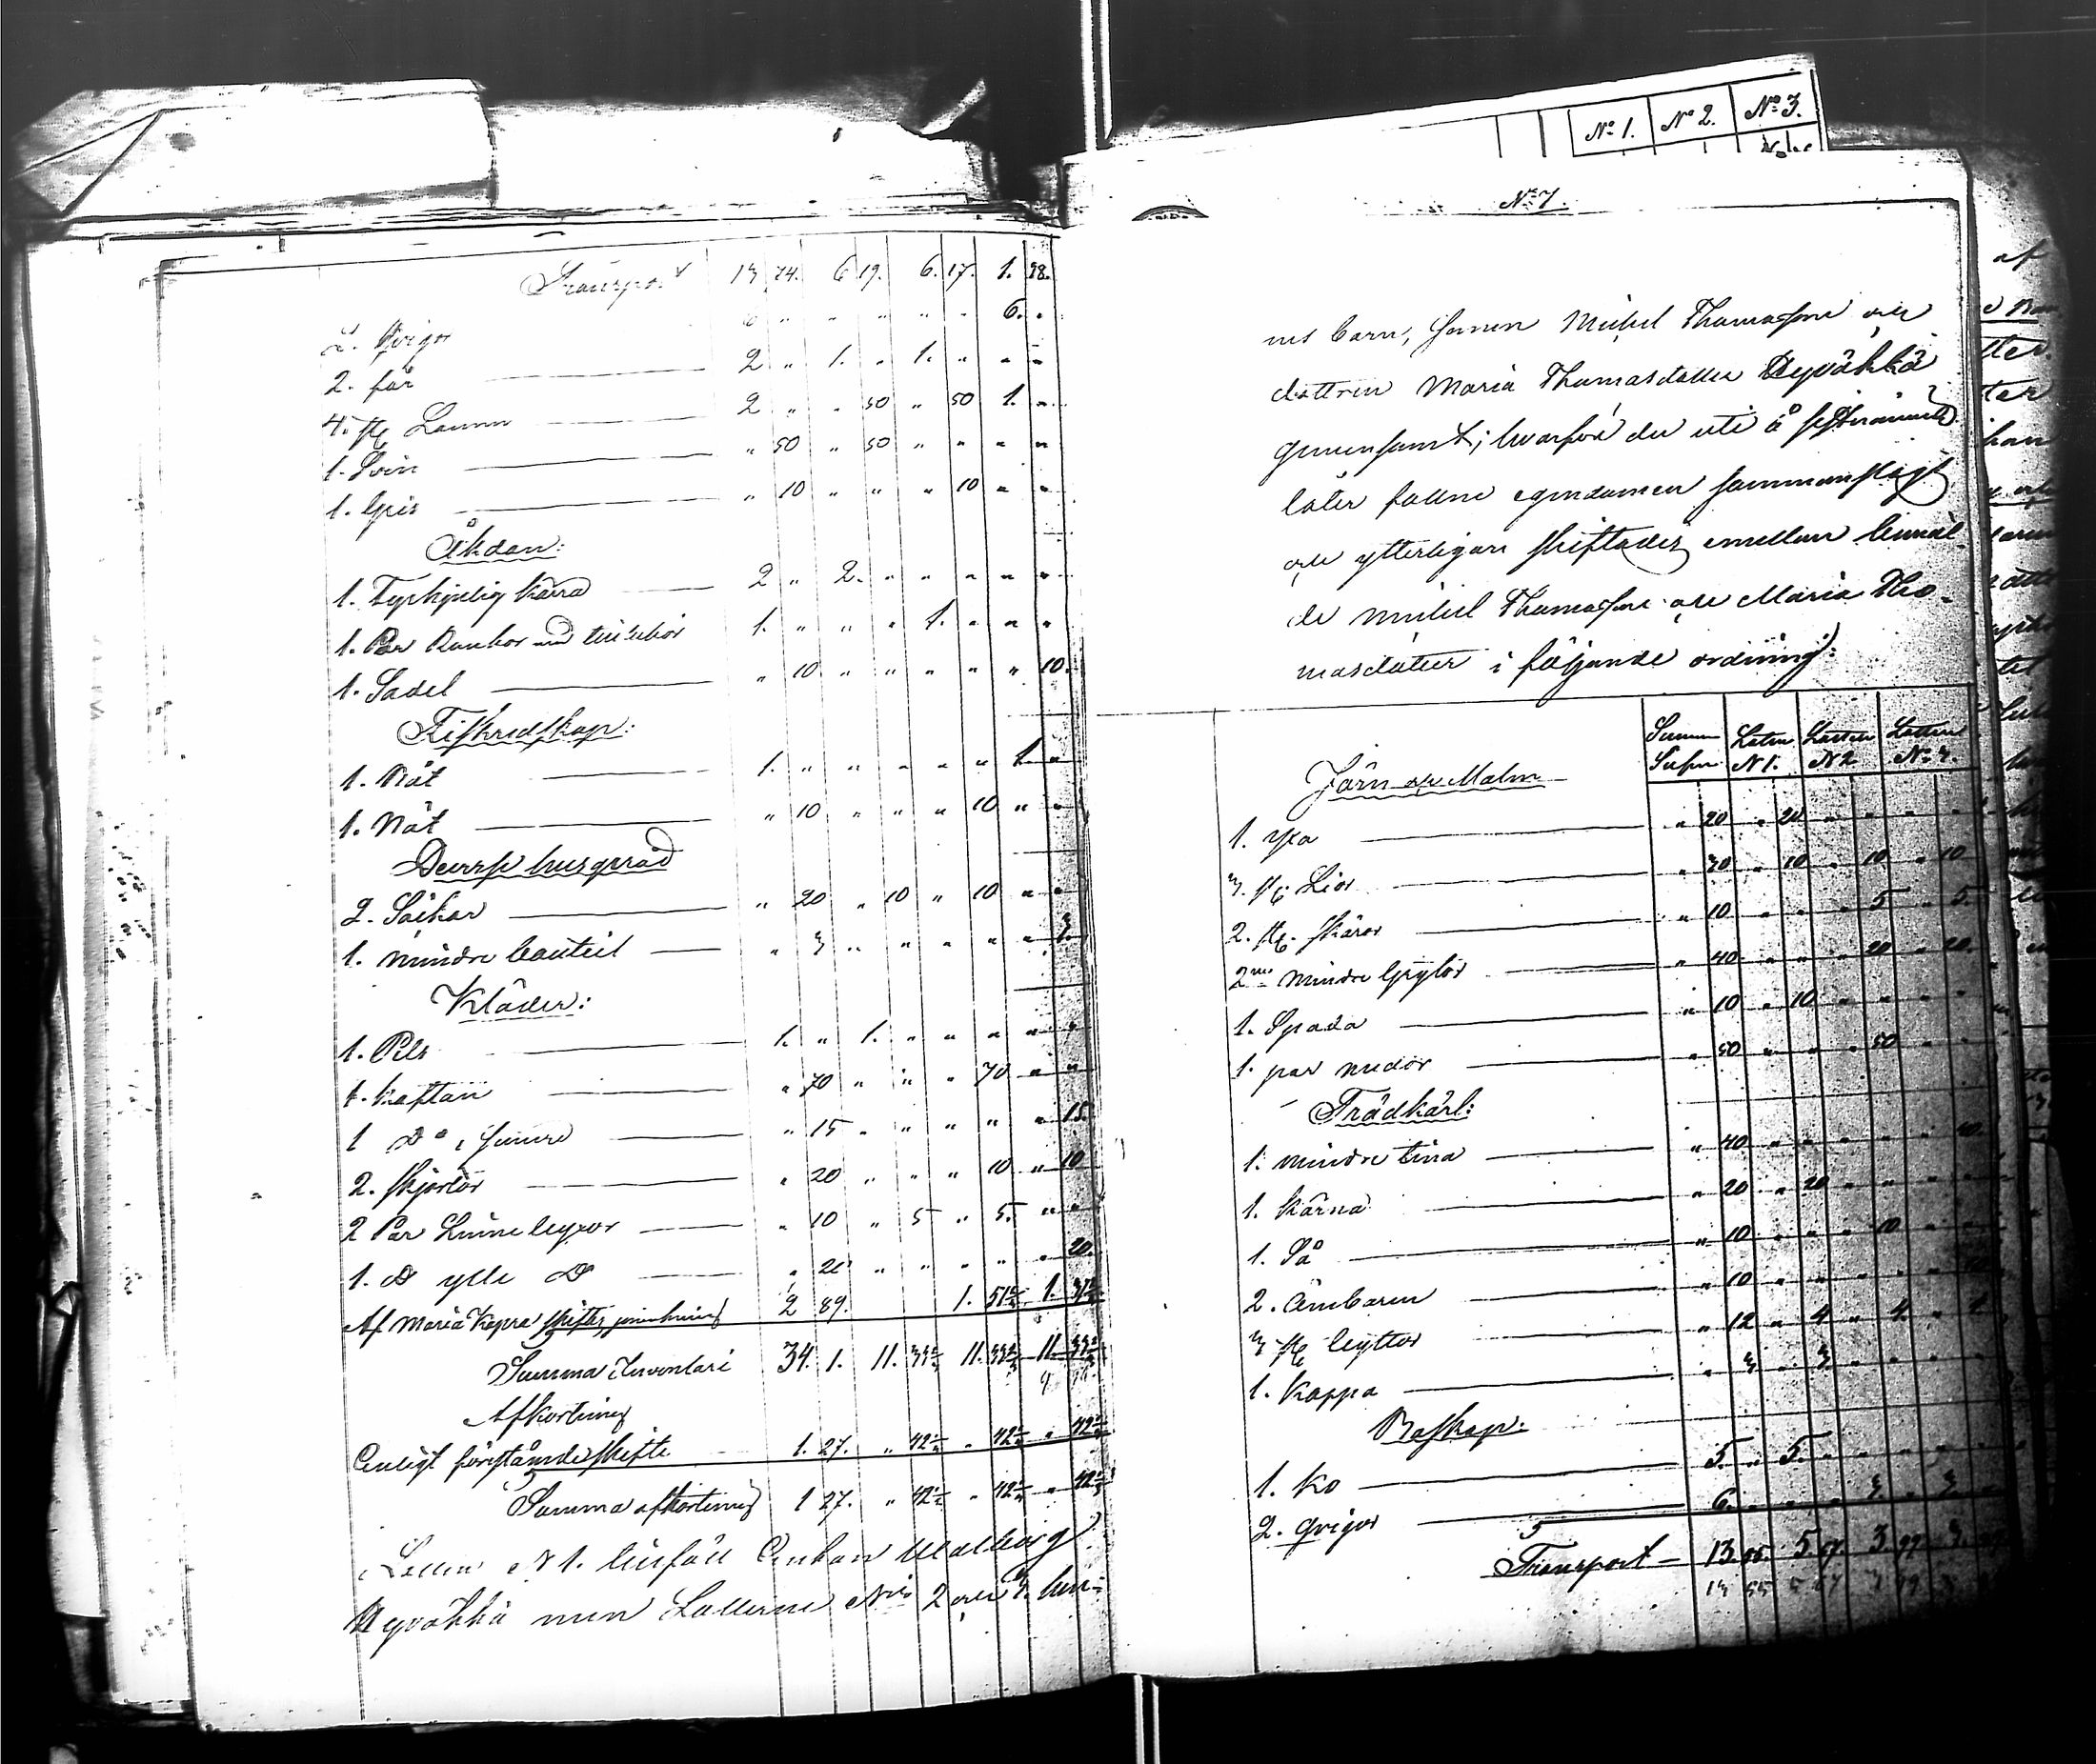 Transport 13 74. 6 19. 6. 17. 1. 38.
2. Qvigor 6 " " " " " 6. "
2. får 2 " 1. " 1. " " "
4. st Lamm 2 " " 50 " 50 1. "
1. Svin " 50 " 50 " " " "
1. Gris " 10 " " " 10 " "
Åkdon:
1. Fyrhjulig Kärra 2 " 2. " " " " "
1. Par Rankor med tillbehör 1. " " " 1. " " "
1. Sadel " 10 " " " " " 10.
Fiskredskap:
1. Nät 1. " " " " " 1. "
1. Nät " 10 " " " 10 " "
Diverse husgeråd
2. Säckar " 20 " 10 " 10 " "
1. mindre bouteil " 3 " " " " " 3.
Kläder:
1. Pels 1. " 1. " " " " "
1. Kaftan " 70 " " " 70 " "
1 Do, sämre " 15 " " " " " 15.
2. Skjortor " 20 " " " 10 " 10
2 Par Linne 10 " 5 " 5. " "
1. Do ylle Do " 20 " " " " " 20.
Af Maria Kapra skifte 2 89. 1. 51 1. 37
Summa Inventari 34. 1. 11. 33 11. 33 11. 33
Afkortning
Enligt förestående skifte 1. 27. " 42 " 42 " 42
Summa afkortning 1 27. " 42 " 42 " 42
Lotten N 1. tillföll Enkan Walborg
Nyväkkä men Lotterne Nis 2 och 3. hen-
No 1. No 2. No 3.
No 7.
nes barn, Sonen Michel Thomasson och
dottren Maria Thomasdotter Nyväkkä
gemensamt; hvarföre den uti å sistnämnde
låter fallne egendomen sammanslagit
och ytterligare skiftades emellan bemäl-
de Michel Thomasson och Maria Tho-
masdotter i följande ordning:
Summa Lotten N 1. Lotten N 2 Lotten No 3.
Järn och Malm
1. yxa " 20 " 20 " " " "
3. st Lior " 30 " 10 " 10 " 10
2. st. Skäror " 10 " " " 5 " 5.
2ne mindre Grytor " 40 " " " 20 " 20.
1. Spada " 10 " 10 " " " "
1. par medor " 50 " " " 50 " "
Trädkärl:
1. mindre tina " 40 " " " " " 40.
1. Kärna " 20 " 20 " " " "
1. Så " 10 " " " 10 " "
2. Ämbaren " 10 " " " " " 10
3 st byttor " 12 " 4 " 4. " 4
1. Kappa " 3 " 3. " " " "
Boskap:
1. Ko 5. " 5. " " " " "
2. Qvigor 6. " " " 3 " 3. "
Transport 13. 55. 5. 67. 3 99
13 55 5 67 3 99